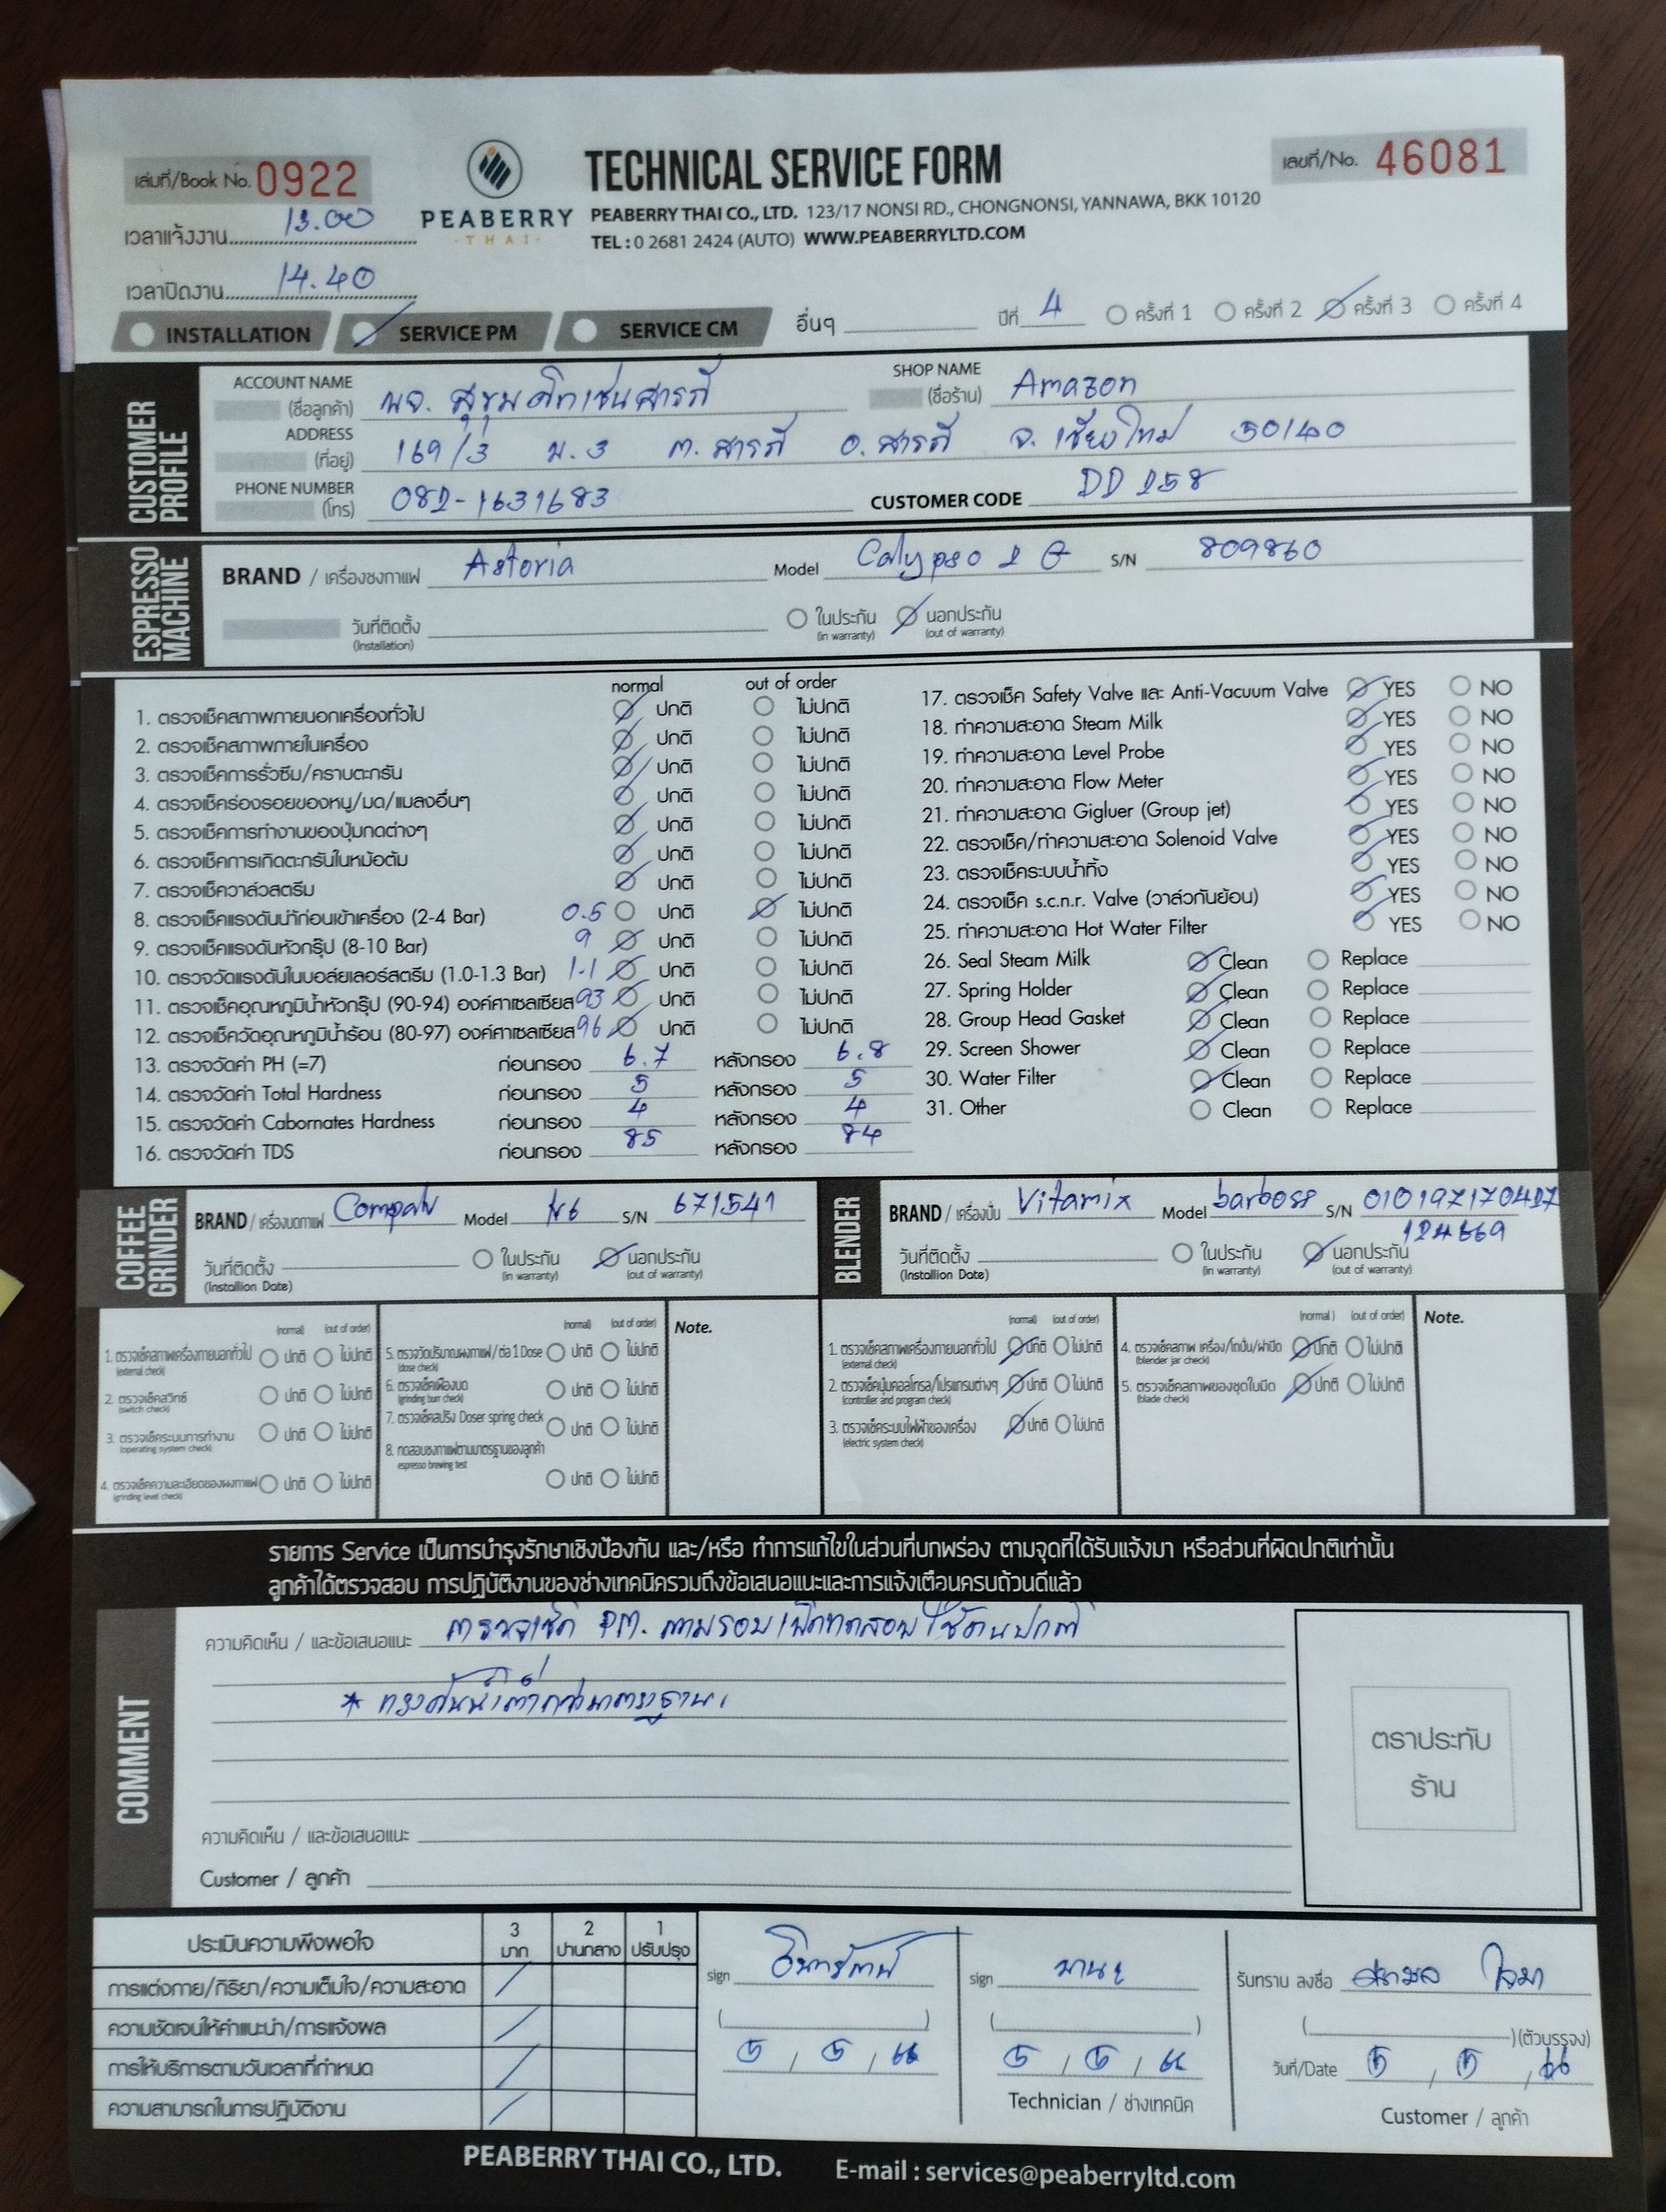 เล่มที่/Book No. 0922
PEABERRY
THAI
TECHNICAL SERVICE FORM
เลขที่/No. 46081
PEABERRY THAI CO., LTD. 123/17 NONSI RD., CHONGNONSI, YANNAWA, BKK 10120
TEL : 0 2681 2424 (AUTO) WWW.PEABERRYLTD.COM
เวลาแจ้งงาน 13.00
เวลาปิดงาน 14.40
INSTALLATION SERVICE PM SERVICE CM อื่นๆ ปีที่ 4 ครั้งที่ 1 ครั้งที่ 2 ครั้งที่ 3 ครั้งที่ 4
CUSTOMER PROFILE
ACCOUNT NAME (ชื่อลูกค้า) สุขุมคิทเช่นสารภี SHOP NAME (ชื่อร้าน) Amazon
ADDRESS (ที่อยู่) 169/3 ม.3 ต.สารภี อ.สารภี จ.เชียงใหม่ 50140
PHONE NUMBER (โทร) 082-1631683 CUSTOMER CODE DD 258
ESPRESSO MACHINE
BRAND / เครื่องชงกาแฟ Astoria Model Calypso 2 G S/N 809860
วันที่ติดตั้ง (Installation) ในประกัน (in warranty) นอกประกัน (out of warranty)
normal out of order
1. ตรวจเช็คสภาพภายนอกเครื่องทั่วไป ปกติ ไม่ปกติ
2. ตรวจเช็คสภาพภายในเครื่อง ปกติ ไม่ปกติ
3. ตรวจเช็คการรั่วซึม/คราบตะกรัน ปกติ ไม่ปกติ
4. ตรวจเช็คร่องรอยของหนู/มด/แมลงอื่นๆ ปกติ ไม่ปกติ
5. ตรวจเช็คการทำงานของปุ่มกดต่างๆ ปกติ ไม่ปกติ
6. ตรวจเช็คการเกิดตะกรันในหม้อต้ม ปกติ ไม่ปกติ
7. ตรวจเช็ควาล์วสตรีม ปกติ ไม่ปกติ
8. ตรวจเช็คแรงดันน้ำก่อนเข้าเครื่อง (2-4 Bar) 0.5 ปกติ ไม่ปกติ
9. ตรวจเช็คแรงดันหัวกรุ๊ป (8-10 Bar) 9 ปกติ ไม่ปกติ
10. ตรวจวัดแรงดันในบอล์ยเลอร์สตรีม (1.0-1.3 Bar) 1.1 ปกติ ไม่ปกติ
11. ตรวจเช็คอุณหภูมิน้ำหัวกรุ๊ป (90-94) องค์ศาเซลเซียส 93 ปกติ ไม่ปกติ
12. ตรวจเช็ควัดอุณหภูมิน้ำร้อน (80-97) องค์ศาเซลเซียส 96 ปกติ ไม่ปกติ
13. ตรวจวัดค่า PH (=7) ก่อนกรอง 6.7 หลังกรอง 6.8
14. ตรวจวัดค่า Total Hardness ก่อนกรอง 5 หลังกรอง 5
15. ตรวจวัดค่า Cabornates Hardness ก่อนกรอง 4 หลังกรอง 4
16. ตรวจวัดค่า TDS ก่อนกรอง 85 หลังกรอง 84
17. ตรวจเช็ค Safety Valve และ Anti-Vacuum Valve YES NO
18. ทำความสะอาด Steam Milk YES NO
19. ทำความสะอาด Level Probe YES NO
20. ทำความสะอาด Flow Meter YES NO
21. ทำความสะอาด Gigluer (Group jet) YES NO
22. ตรวจเช็ค/ทำความสะอาด Solenoid Valve YES NO
23. ตรวจเช็คระบบน้ำทิ้ง YES NO
24. ตรวจเช็ค s.c.n.r. Valve (วาล์วกันย้อน) YES NO
25. ทำความสะอาด Hot Water Filter YES NO
26. Seal Steam Milk Clean Replace
27. Spring Holder Clean Replace
28. Group Head Gasket Clean Replace
29. Screen Shower Clean Replace
30. Water Filter Clean Replace
31. Other Clean Replace
COFFEE GRINDER
BRAND / เครื่องบดกาแฟ Compak Model K6 S/N 671541
วันที่ติดตั้ง (Installion Date) ในประกัน (in warranty) นอกประกัน (out of warranty)
BLENDER
BRAND / เครื่องปั่น Vitamix Model barboss S/N 010197170427
124669
วันที่ติดตั้ง (Installion Date) ในประกัน (in warranty) นอกประกัน (out of warranty)
(normal) (out of order)
1. ตรวจเช็คสภาพเครื่องภายนอกทั่วไป (external check) ปกติ ไม่ปกติ
2. ตรวจเช็คสวิทช์ (switch check) ปกติ ไม่ปกติ
3. ตรวจเช็คระบบการทำงาน (operating system check) ปกติ ไม่ปกติ
4. ตรวจเช็คความละเอียดของผงกาแฟ (grinding level check) ปกติ ไม่ปกติ
(normal) (out of order)
5. ตรวจวัดปริมาณผงกาแฟ/ต่อ 1 Dose (dose check) ปกติ ไม่ปกติ
6. ตรวจเช็คเฟืองบด (grinding burr check) ปกติ ไม่ปกติ
7. ตรวจเช็คสปริง Doser spring check ปกติ ไม่ปกติ
8. ทดสอบชงกาแฟตามมาตรฐานของลูกค้า espresso brewing test ปกติ ไม่ปกติ
Note.
(normal) (out of order)
1. ตรวจเช็คสภาพเครื่องภายนอกทั่วไป (external check) ปกติ ไม่ปกติ
2. ตรวจเช็คปุ่มคอลโทรล/โปรแกรมต่างๆ (controller and program check) ปกติ ไม่ปกติ
3. ตรวจเช็คระบบไฟฟ้าของเครื่อง (electric system check) ปกติ ไม่ปกติ
(normal) (out of order)
4. ตรวจเช็คสภาพ เครื่อง/โถปั่น/ฝาปิด (blender jar check) ปกติ ไม่ปกติ
5. ตรวจเช็คสภาพของชุดใบมีด (blade check) ปกติ ไม่ปกติ
Note.
รายการ Service เป็นการบำรุงรักษาเชิงป้องกัน และ/หรือ ทำการแก้ไขในส่วนที่บกพร่อง ตามจุดที่ได้รับแจ้งมา หรือส่วนที่ผิดปกติเท่านั้น
ลูกค้าได้ตรวจสอบ การปฏิบัติงานของช่างเทคนิครวมถึงข้อเสนอแนะและการแจ้งเตือนครบถ้วนดีแล้ว
COMMENT
ความคิดเห็น / และข้อเสนอแนะ ตรวจเช็ค PM. ตามรอบ เปิดทดสอบใช้งานปกติ
* แรงดันน้ำต่ำกว่ามาตรฐาน
ความคิดเห็น / และข้อเสนอแนะ
Customer / ลูกค้า
ตราประทับ
ร้าน
ประเมินความพึงพอใจ 3 มาก 2 ปานกลาง 1 ปรับปรุง
การแต่งกาย/กิริยา/ความเต็มใจ/ความสะอาด
ความชัดเจนให้คำแนะนำ/การแจ้งผล
การให้บริการตามวันเวลาที่กำหนด
ความสามารถในการปฏิบัติงาน
sign
5 / 5 / 66
sign
5 / 5 / 66
Technician / ช่างเทคนิค
รับทราบ ลงชื่อ
(ตัวบรรจง)
วันที่/Date 5 / 5 / 66
Customer / ลูกค้า
PEABERRY THAI CO., LTD. E-mail : services@peaberryltd.com